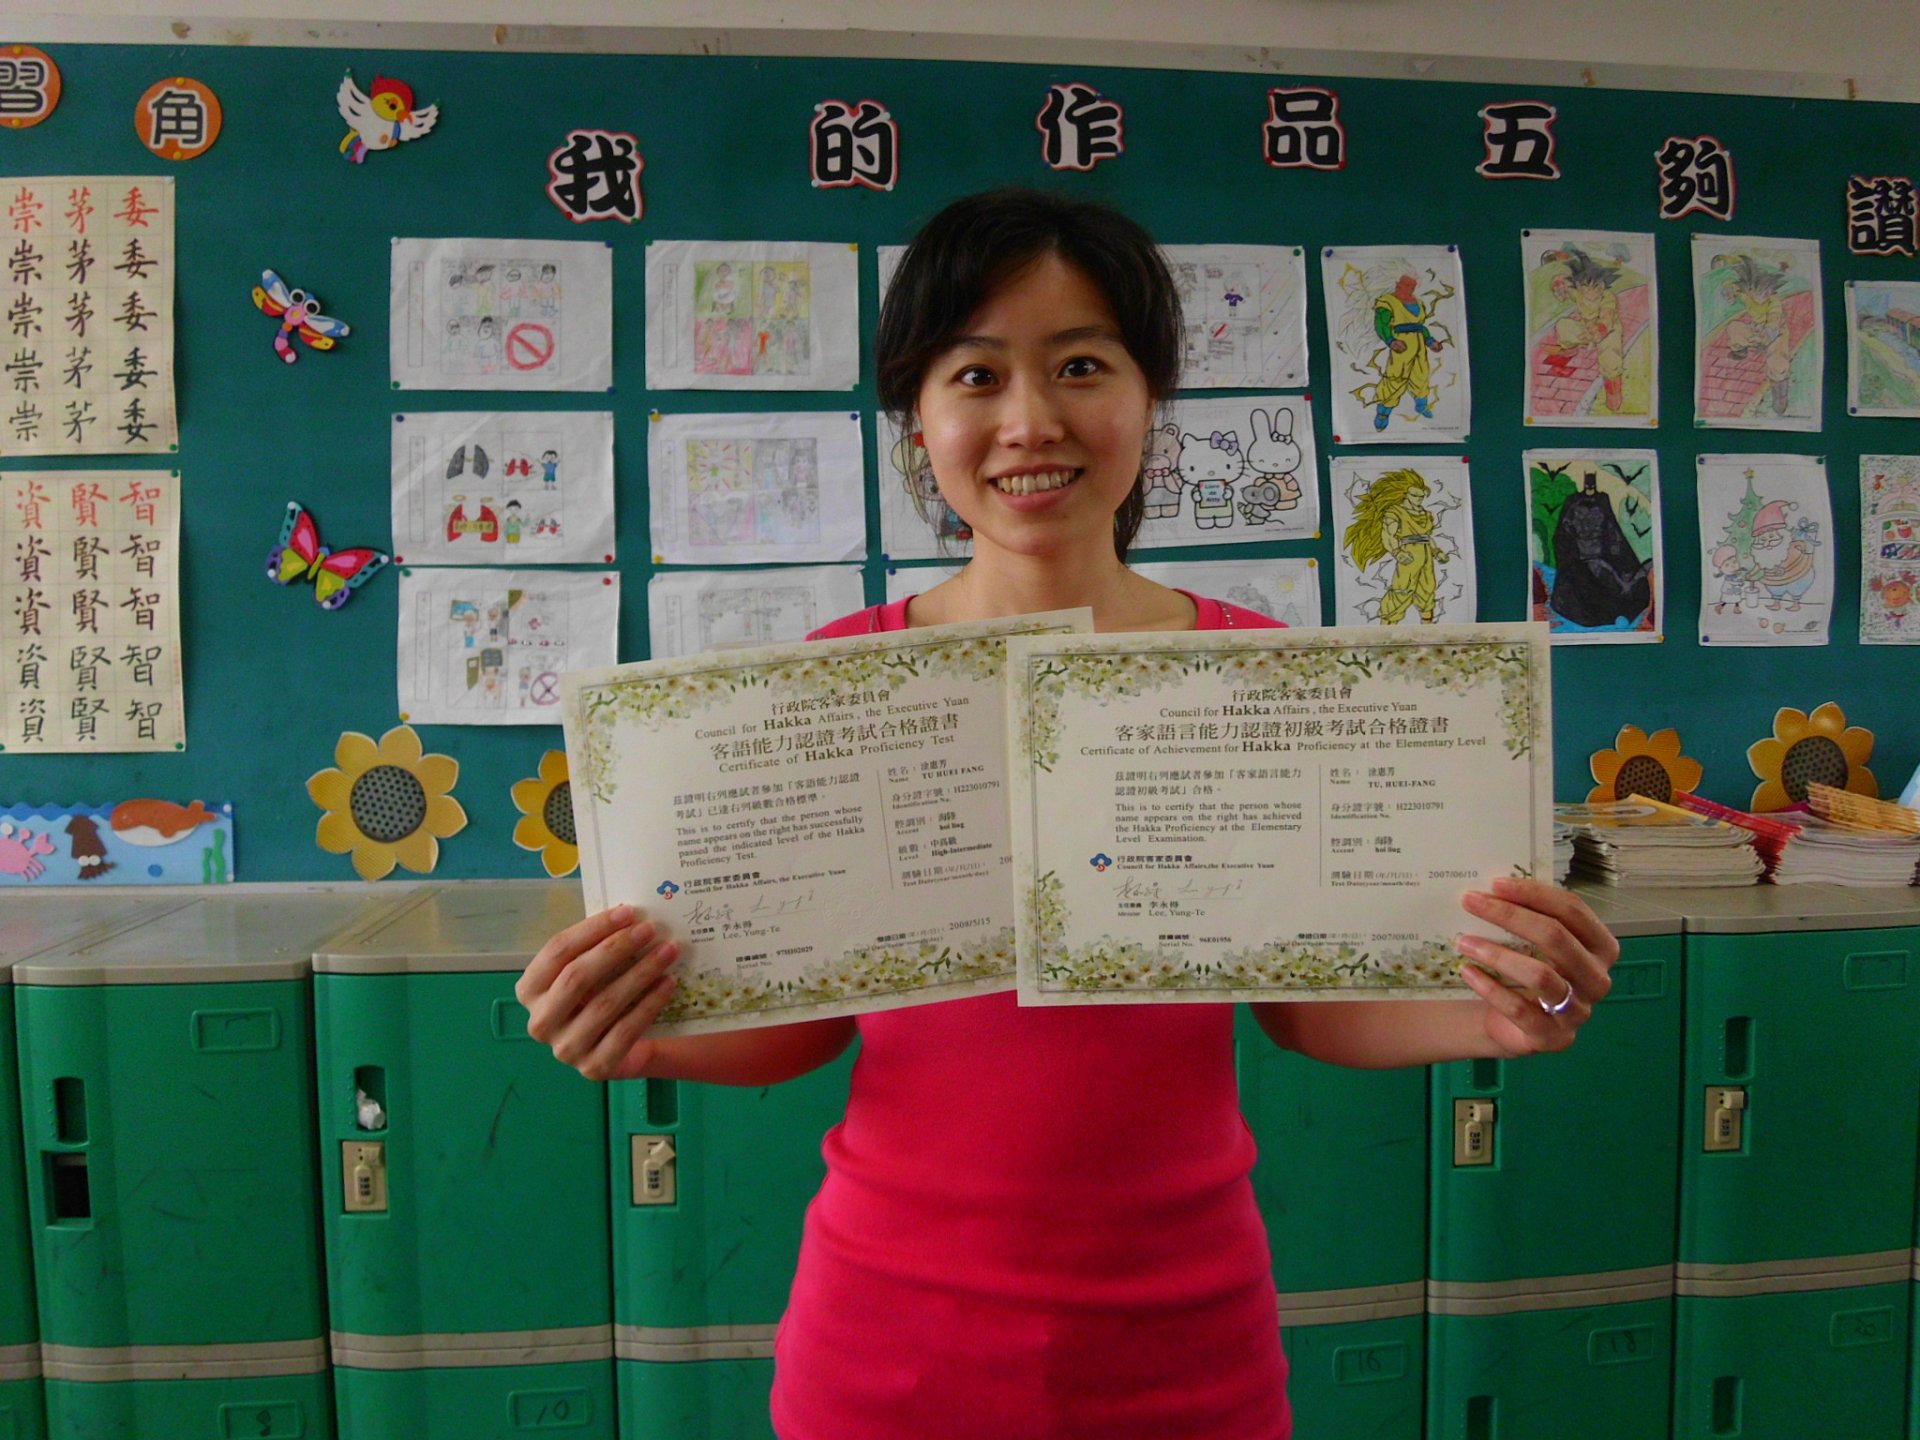 習角
我的作品五夠讚
崇茅委
崇茅委
崇茅委
崇茅委
崇茅委
資賢智
資賢智
資賢智
資賢智
資賢智
行政院客家委員會
Council for Hakka Affairs, the Executive Yuan
客語能力認證考試合格證書
Certificate of Hakka Proficiency Test
茲證明右列應試者參加「客語能力認證
考試」已達右列級數合格標準。
This is to certify that the person whose
name appears on the right has successfully
passed the indicated level of the Hakka
Proficiency Test.
行政院客家委員會
Council for Hakka Affairs, the Executive Yuan
主任委員 李永得
Minister Lee, Yung-Te
證書編號：97H02029
Serial No.
姓名：涂惠芳
Name TU HUEI FANG
身分證字號：H223010791
Identification No.
腔調別：海陸
Accent hoi liug
級數：中高級
Level High-Intermediate
測驗日期(年/月/日)： 200
Test Date(year/month/day)
發證日期(年/月/日)：2008/5/15
行政院客家委員會
Council for Hakka Affairs, the Executive Yuan
客家語言能力認證初級考試合格證書
Certificate of Achievement for Hakka Proficiency at the Elementary Level
茲證明右列應試者參加「客家語言能力
認證初級考試」合格。
This is to certify that the person whose
name appears on the right has achieved
the Hakka Proficiency at the Elementary
Level Examination.
行政院客家委員會
Council for Hakka Affairs,the Executive Yuan
主任委員 李永得
Minister Lee, Yung-Te
證書編號：96E01956
Serial No.
姓名：涂惠芳
Name TU, HUEI-FANG
身分證字號：H223010791
Identification No.
腔調別：海陸
Accent hoi liug
測驗日期(年/月/日)：2007/06/10
Test Date(year/month/day)
發證日期(年/月/日)：2007/08/01
8
10
16
18
20